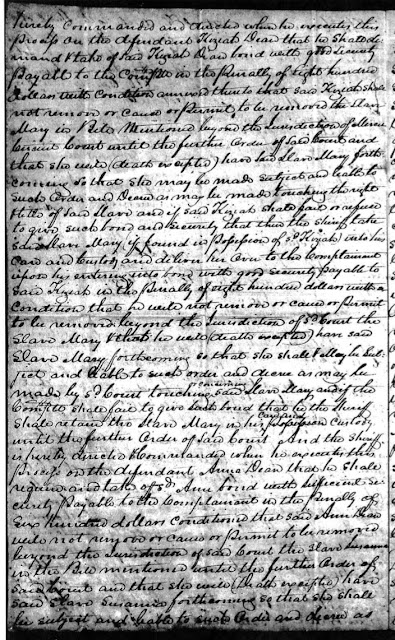 hereby Commanded and directed when he executes this
Process on the defendant Keziah Dean that he shall de-
mand & take of said Keziah Dean bond with good Security
Payable to the Complt in the Penalty of Eight hundred
dollars with Condition annexed thereto that said Keziah shall
not remove or cause or Permit to be removed the Slave
Mary in Bill Mentioned beyond the Jurisdiction of
Circuit Court until the further Order of said Court and
that she will (death excepted) have said Slave Mary forth-
coming so that she may be made subject and liable to
such Order and Decree as may be made touching the right
title of said Slave and if said Keziah shall fail or refuse
to give such bond and security that then the Sheriff take
said Slave Mary if found in Possession of sd. Keziah into his
Care and Custody and deliver her over to the Complainant
upon his entering into bond with good security Payable to
said Keziah in the Penalty of eight hundred dollars with a
Condition that he will not remove or cause or Permit
to be removed beyond the Jurisdiction of sd. Court the
Slave Mary & that he will (death excepted) have said
Slave Mary forthcoming so that she shall & May be Sub-
ject and liable to such order and decree as may be
made by sd. Court touching said Slave Mary and if the
Complt shall fail to give such bond that he the Sheriff
Shall retain the Slave Mary in his Possession Custody
until the further Order of said Court, And the Sheriff
is hereby directed & Commanded when he executes this
Process on the defendant Anna Dean that he shall
require and take of sd. Anna bond with sufficient Se-
curity Payable to the Complainant in the Penalty of
Six hundred dollars conditioned that said Ann Dean
will not remove or cause or Permit to be removed
beyond the Jurisdiction of said Court the Slave Susanna
in the Bill mentioned until the further Order of
said Court and that she will (Death excepted) have
said Slave Susanna forthcoming so that she shall
be subject and liable to such Order and decree as